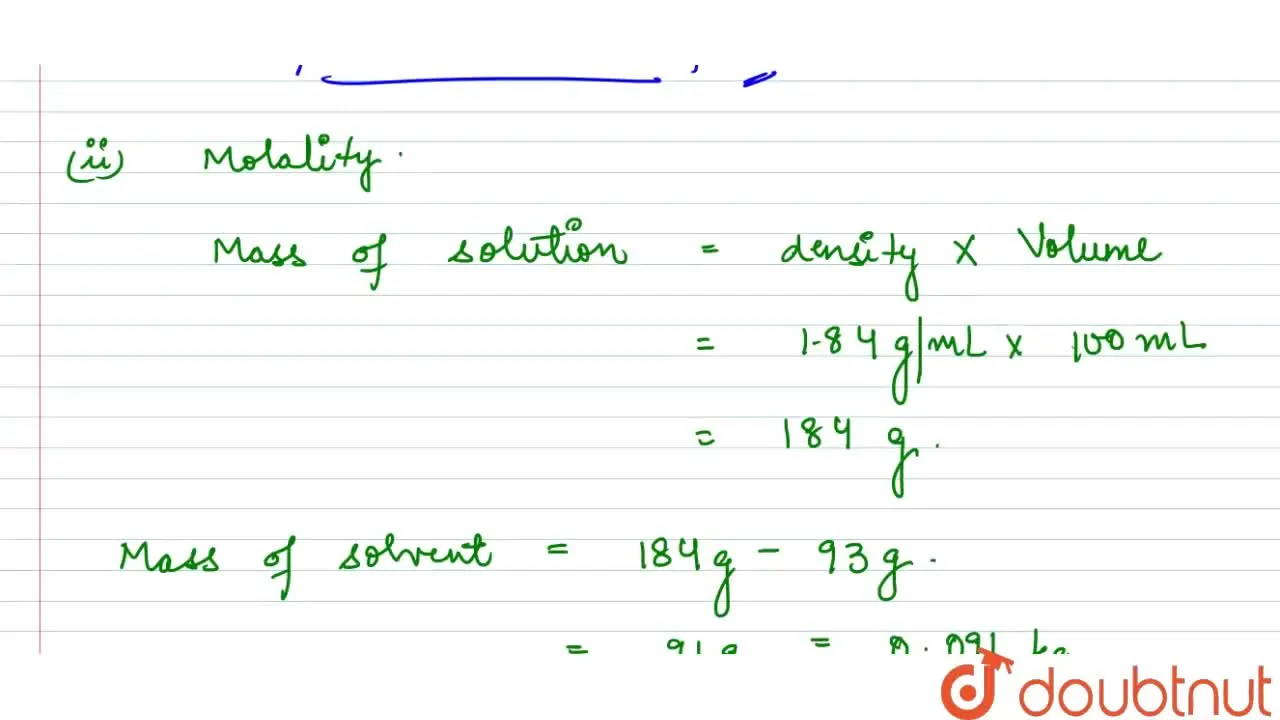 (ii) Molality.
Mass of solution = density X Volume
= 1.84 g/mL x 100 mL
= 184 g.
Mass of solvent = 184 g - 93 g.
= 91 g = 0.091 kg
doubtnut